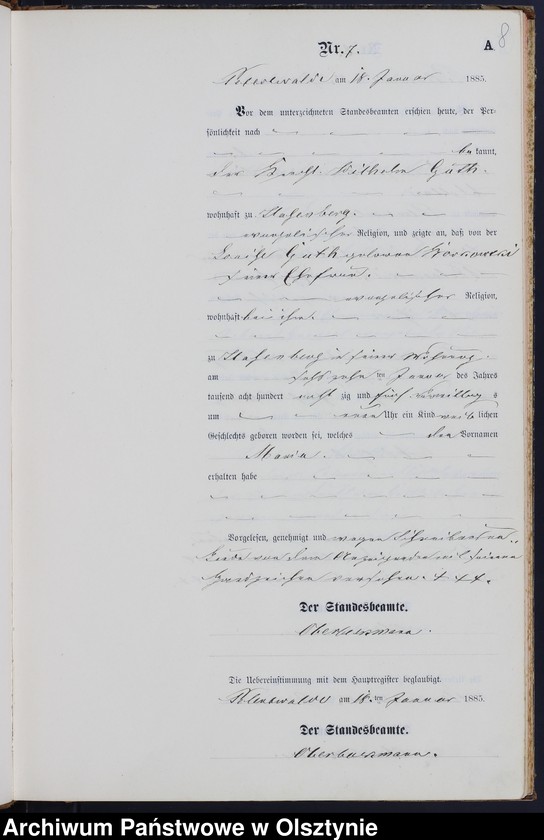 8
Nr. 7. A
am 18. Januar 1885.
Vor dem unterzeichneten Standesbeamten erschien heute, der Per-
sönlichkeit nach
be kannt,
der Knecht Wilhelm Guth
wohnhaft zu
evangelischer Religion, und zeigte an, daß von der
Louise Guth geborene
seiner Ehefrau,
evangelischer Religion,
wohnhaft bei ihm
zu in seiner Wohnung
am sechszehn ten Januar des Jahres
tausend acht hundert acht zig und fünf Vormittag s
um neun Uhr ein Kind weib lichen
Geschlechts geboren worden sei, welches den Vornamen
Maria
erhalten habe
Vorgelesen, genehmigt und wegen Schreibens un-
kunde von dem Anzeigenden mit seinem
Handzeichen versehen. + + +.
Der Standesbeamte.
Die Uebereinstimmung mit dem Hauptregister beglaubigt.
am 18. ten Januar 1885.
Der Standesbeamte.
Archiwum Państwowe w Olsztynie